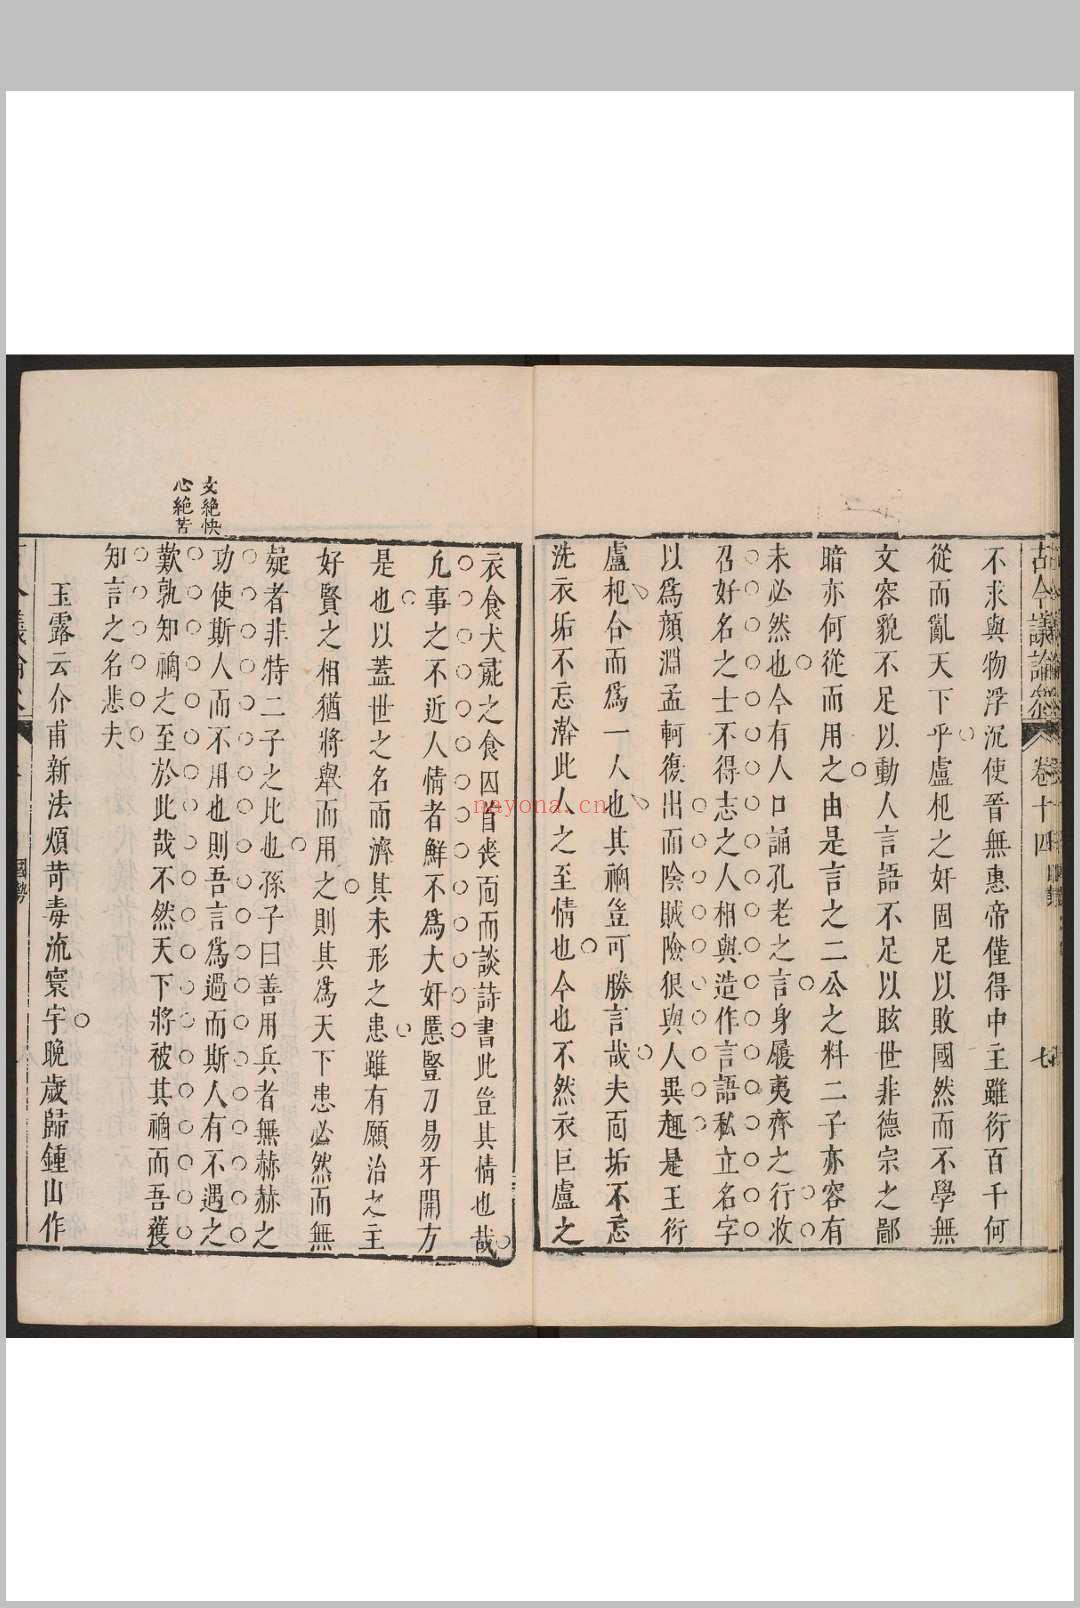 古今議論參 卷十四 七
不求與物浮沉使晉無惠帝僅得中主雖衍百千何
從而亂天下乎盧杞之奸固足以敗國然而不學無
文容貌不足以動人言語不足以眩世非德宗之鄙
暗亦何從而用之由是言之二公之料二子亦容有
未必然也今有人口誦孔老之言身履夷齊之行收
召好名之士不得志之人相與造作言語私立名字
以爲顔淵孟軻復出而陰賊險狠與人異趣是王衍
盧杞合而爲一人也其禍豈可勝言哉夫面垢不忘
洗衣垢不忘澣此人之至情也今也不然衣巨盧之
衣食犬彘之食囚首喪面而談詩書此豈其情也哉
凡事之不近人情者鮮不爲大奸慝豎刁易牙開方
是也以蓋世之名而濟其未形之患雖有願治之主
好賢之相猶將舉而用之則其爲天下患必然而無
疑者非特二子之比也孫子曰善用兵者無赫赫之
功使斯人而不用也則吾言爲過而斯人有不遇之
歎孰知禍之至於此哉不然天下將被其禍而吾獲
知言之名悲夫
文絶快
心絶苦
玉露云介甫新法煩苛毒流寰宇晚歲歸鍾山作
國勢
nayona.cn